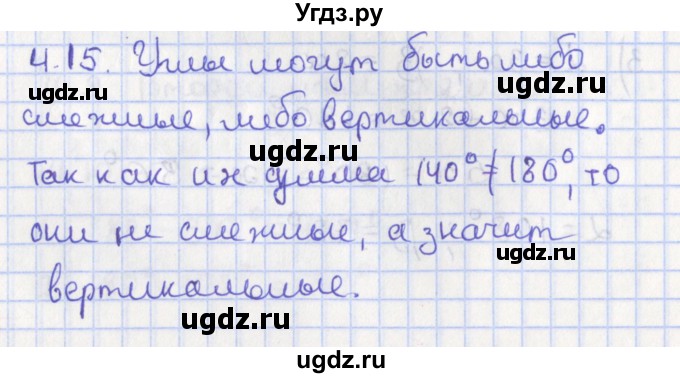 Угдз.ру
4.15. Углы могут быть либо
ugdz.ru ugdz.ru
смежные, либо вертикальные.
ugdz.ru
Так как их сумма 140° ≠ 180°, то
ugdz.ru ugdz.ru
они не смежные, а значит
ugdz.ru
вертикальные.
ugdz.ru
ugdz.ru